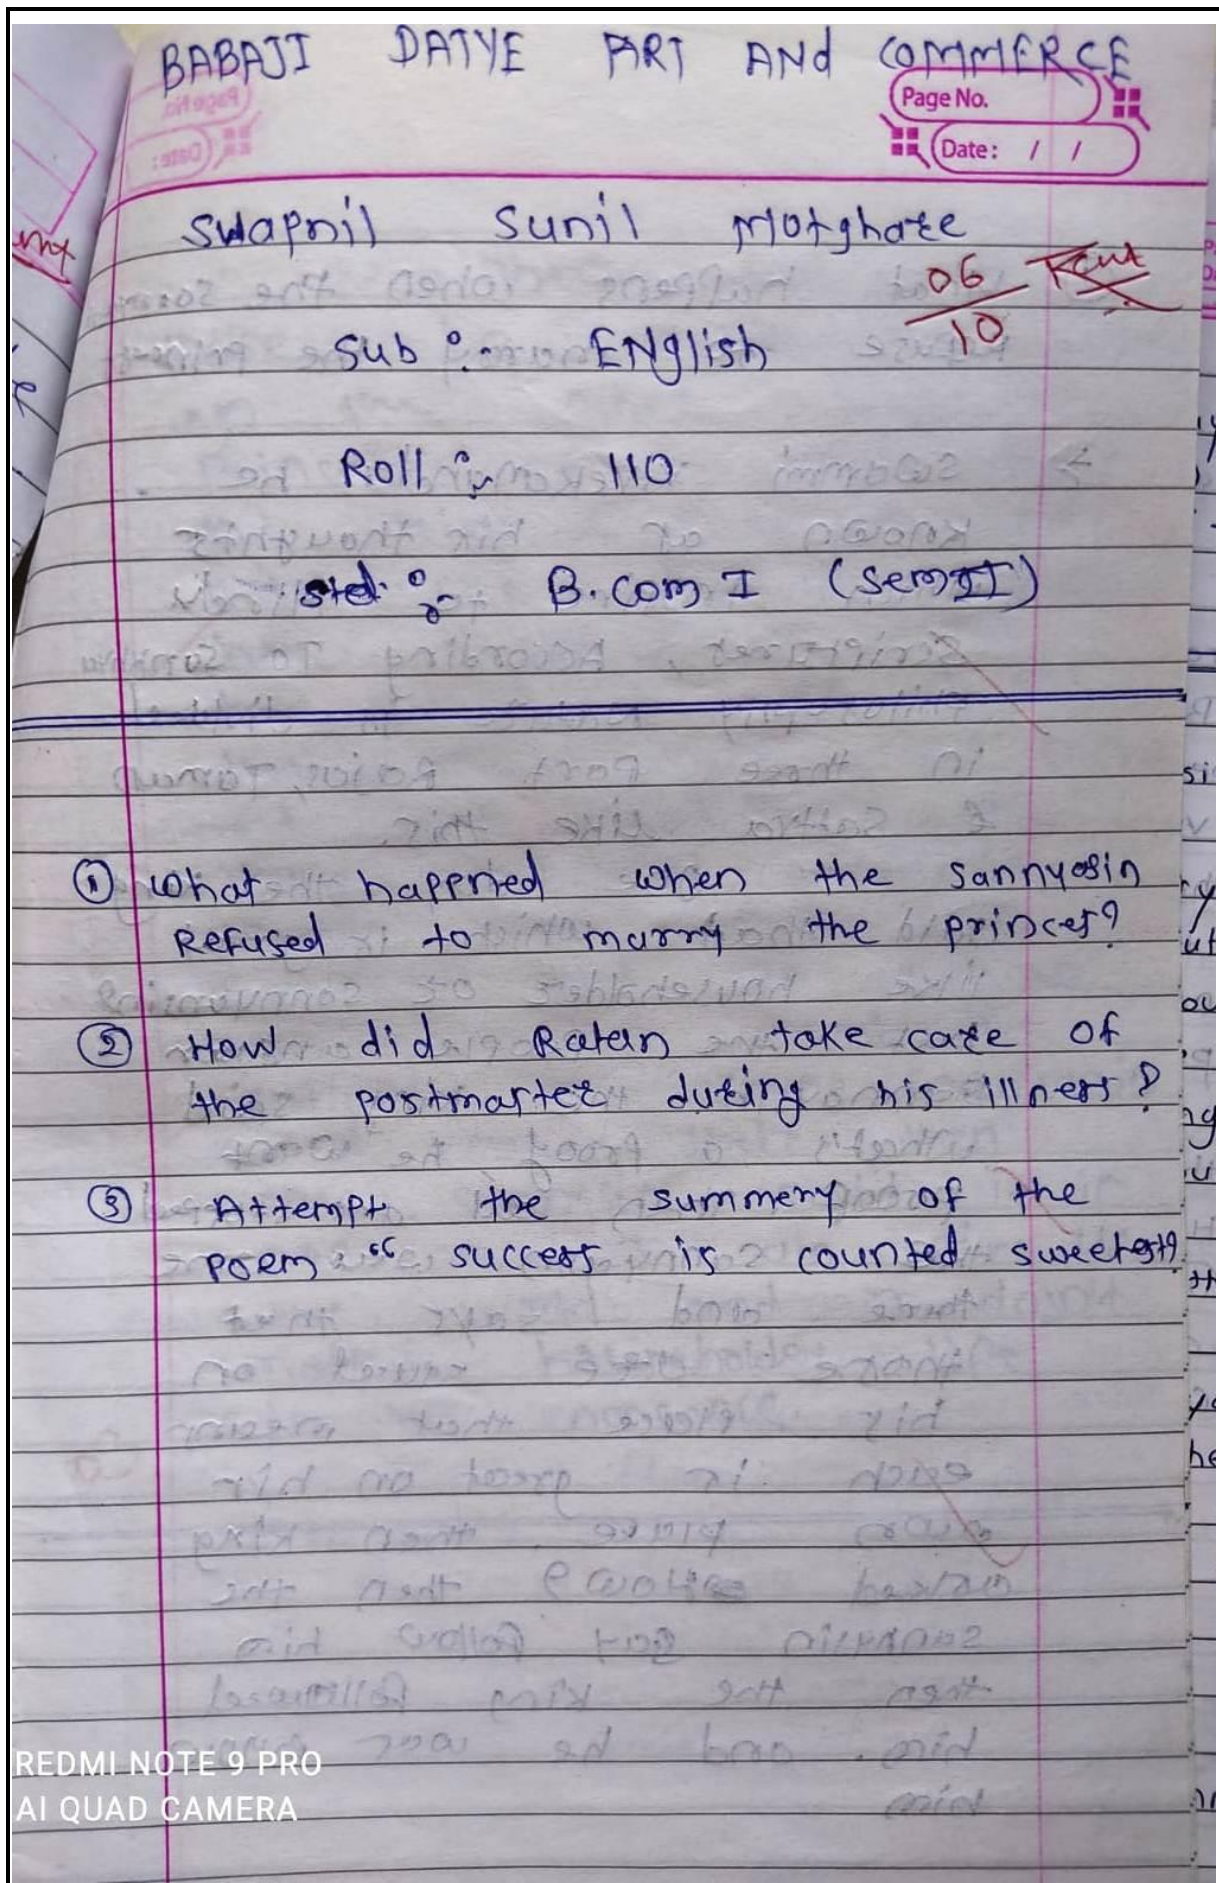 BABAJI DATYE ART AND COMMERCE
Page No.
Date: / /
Swapnil Sunil Motghare
06
10
Sub :- ENglish
Roll :- 110
std :- B.com I (sem II)
① what happned when the sannyasin
Refused to marry the princes?
② How did Ratan take care of
the postmaster during his illness?
③ Attempt the summery of the
poem " success is counted sweetest?
REDMI NOTE 9 PRO
AI QUAD CAMERA